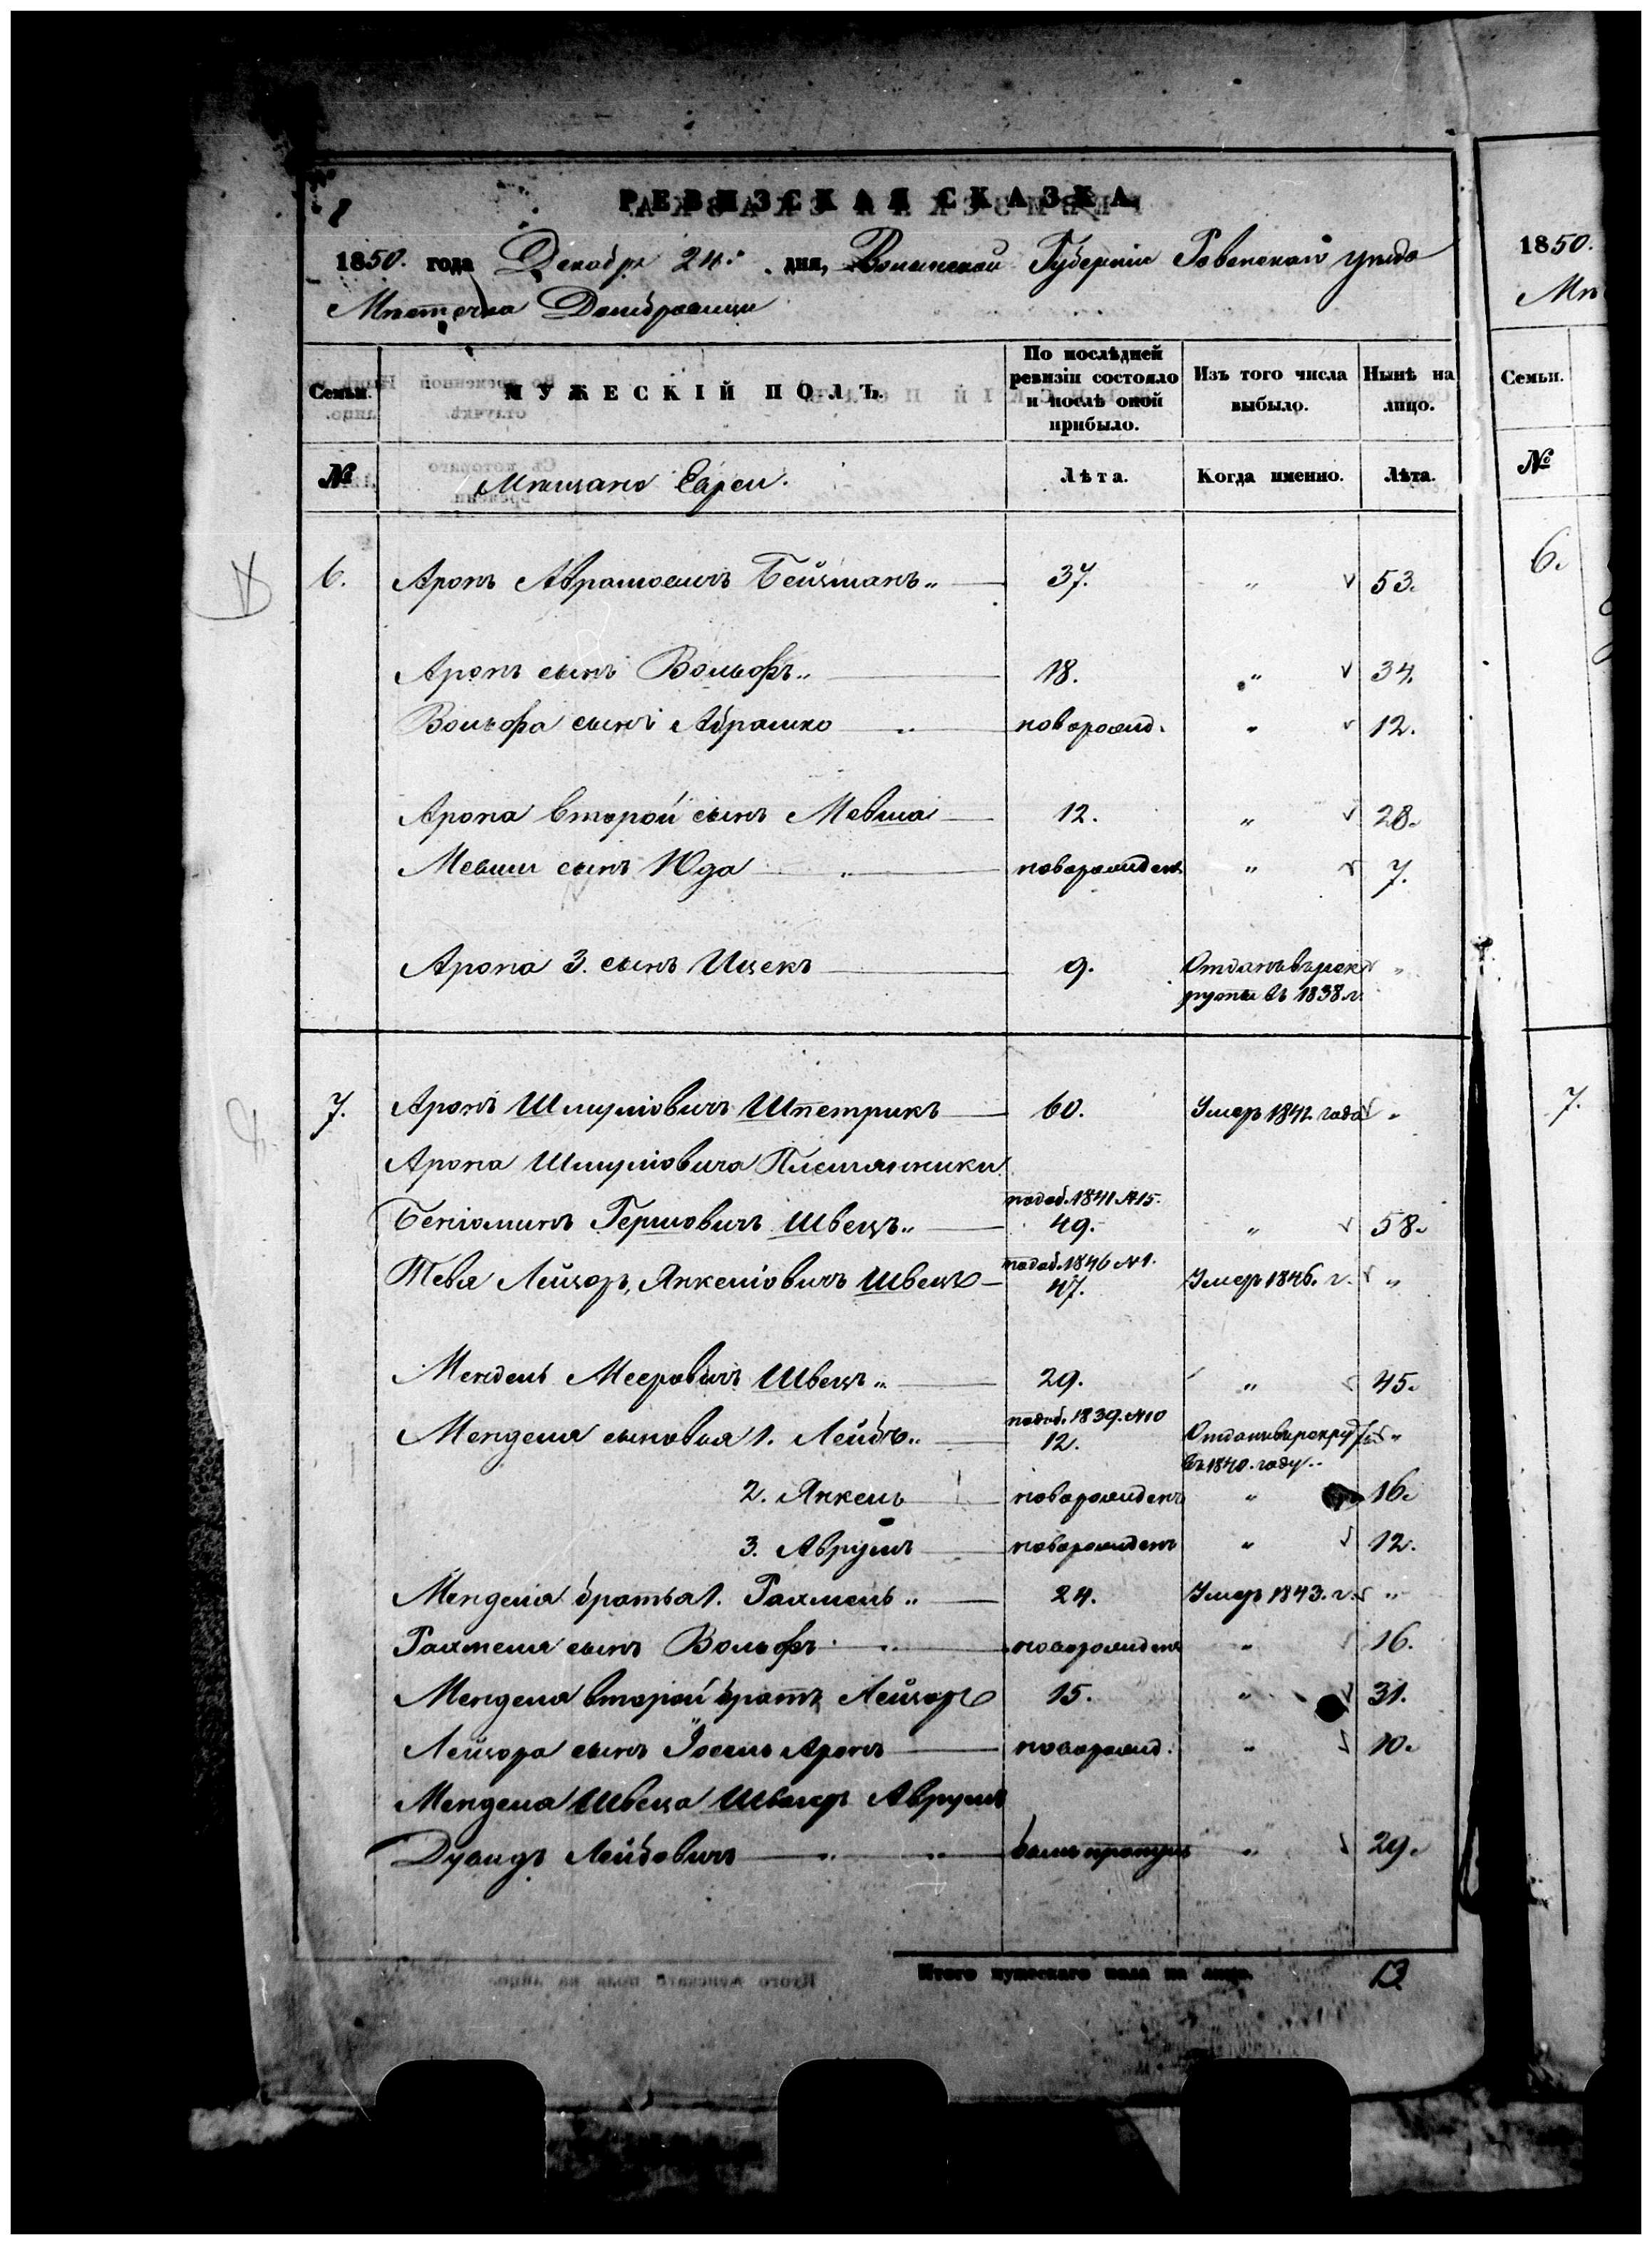 РЕВИЗСКАЯ СКАЗКА
1850. года Декабря 24. дня, Волынской Губерніи Ровенскаго уезда
Местечка Домбровицы
Семьи.
МУЖЕСКІЙ ПОЛЪ.
По послѣдней ревизіи состояло и послѣ оной прибыло.
Изъ того числа выбыло.
Нынѣ на лицо.
№
Мещане Евреи.
Лѣта.
Когда именно.
Лѣта.
6. Аронъ Абрамовичъ Бейзманъ „ 37. „ 53.
Аронъ сынъ Вольфъ „ 18. „ 34.
Вольфа сынъ Абрамко „ новорожд. „ 12.
Арона второй сынъ Мевша 12. „ 28.
Мевши сынъ Юда „ новорожденъ „ 7.
Арона 3. сынъ Ицекъ 9. Отданъ въ рек „
руты въ 1838 г.
7. Аронъ Шмулiовичъ Шпетрикъ 60. Умеръ 1842 года „
Арона Шмулiовича Племянники
подоб. 1841 №15.
Бенiоминъ Гершовичъ Швецъ „ 49. „ 58.
подоб. 1846 №1.
Тевя Лейзоръ Янкелiовичъ Швецъ 47. Умеръ 1846. г. „
Мендель Мееровичъ Швецъ „ 29. „ 45.
подоб. 1839. №10
Менделя сыновья 1. Лейбъ „ 12. Отданъ въ рекруты „
въ 1840. году
2. Янкель новорожденъ „ 16.
3. Аврумъ новорожденъ „ 12.
Менделя братья 1. Рахмель „ 24. Умеръ 1843. г. „
Рахмеля сынъ Вольфъ „ новорожденъ „ 16.
Менделя второй братъ Лейзоръ 15. „ 31.
Лейзора сынъ Іосель Аронъ новорожд. „ 10.
Менделя Швеца Швагеръ Аврумъ
Дувидъ Лейбовичъ „ „ былъ пропущ „ 29.
Итого мужескаго пола на лицо. 13
1850.
Семьи.
№
6.
7.